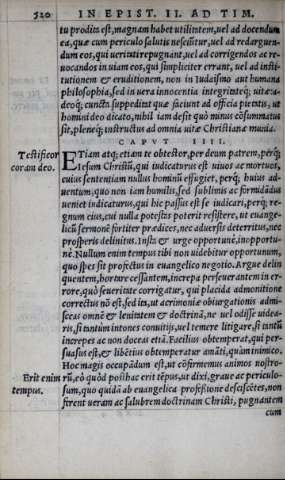 520 IN EPIST. II. AD TIM.
tu prodita est, magnam habet utilitatem, uel ad docendum
ea, quæ cum periculo salutis nesciũtur, uel ad redarguen-
dum eos, qui ueritati repugnant, uel ad corrigendos ac re-
uocandos in uiam eos, qui simpliciter errant, uel ad insti-
tutionem & eruditionem, non in Iudaismo aut humana
philosophia, sed in uera innocentia integritateq;: uitæ:a-
deoq; cuncta suppedint quæ faciunt ad officia pietatis, ut
homini deo dicato, nihil iam desit quò minus cõsummatus
sit, pleneq; instructus ad omnia uitæ Christianæ munia.
CAPVT IIII.
Testificor
coram deo.
ETiam atq; etiam te obtestor, per deum patrem, perq;
Iesum Christũ, qui iudicaturus est uiuos ac mortuos,
cuius sententiam nullus hominũ effugiet, perq; huius ad-
uentum, quo non iam humilis, sed sublimis ac formidãdus
ueniet iudicaturus, qui hic passus est se iudicari, perq; re-
gnum eius, cui nulla potestas poterit resistere, ut euange-
licũ sermonẽ fortiter prædices, nec aduersis deterritus, nec
prosperis delinitus. insta & urge opportunè, inopportu-
nè. Nullum enim tempus tibi non uidebitur opportunum,
quo spes sit profectus in euangelico negotio. Argue delin
quentem, hortare cessantem, increpa perseuerantem in er-
rore, quò seueritate corrigatur, qui placida admonitione
correctus nõ est, sed ita, ut acrimoniæ obiurgationis admi-
sceas omnẽ & leuitatem & doctrinã, ne uel odisse uidea-
ris, si tantùm intones conuitijs, uel temere litigare, si tantũ
increpes ac non doceas etiã. Facilius obtemperat, qui per-
suasus est, & libẽtius obtemperatur amãti, quàm inimico.
Hoc magis occupãdum est, ut cõfirmemus animos nostro-
Erit enim
tempus.
rũ, eò quòd posthac erit tẽpus, ut dixi, graue ac periculo-
sum, quo quidã ab euangelica professione desciscẽtes, non
ferent ueram ac salubrem doctrinam Christi, pugnantem
cum